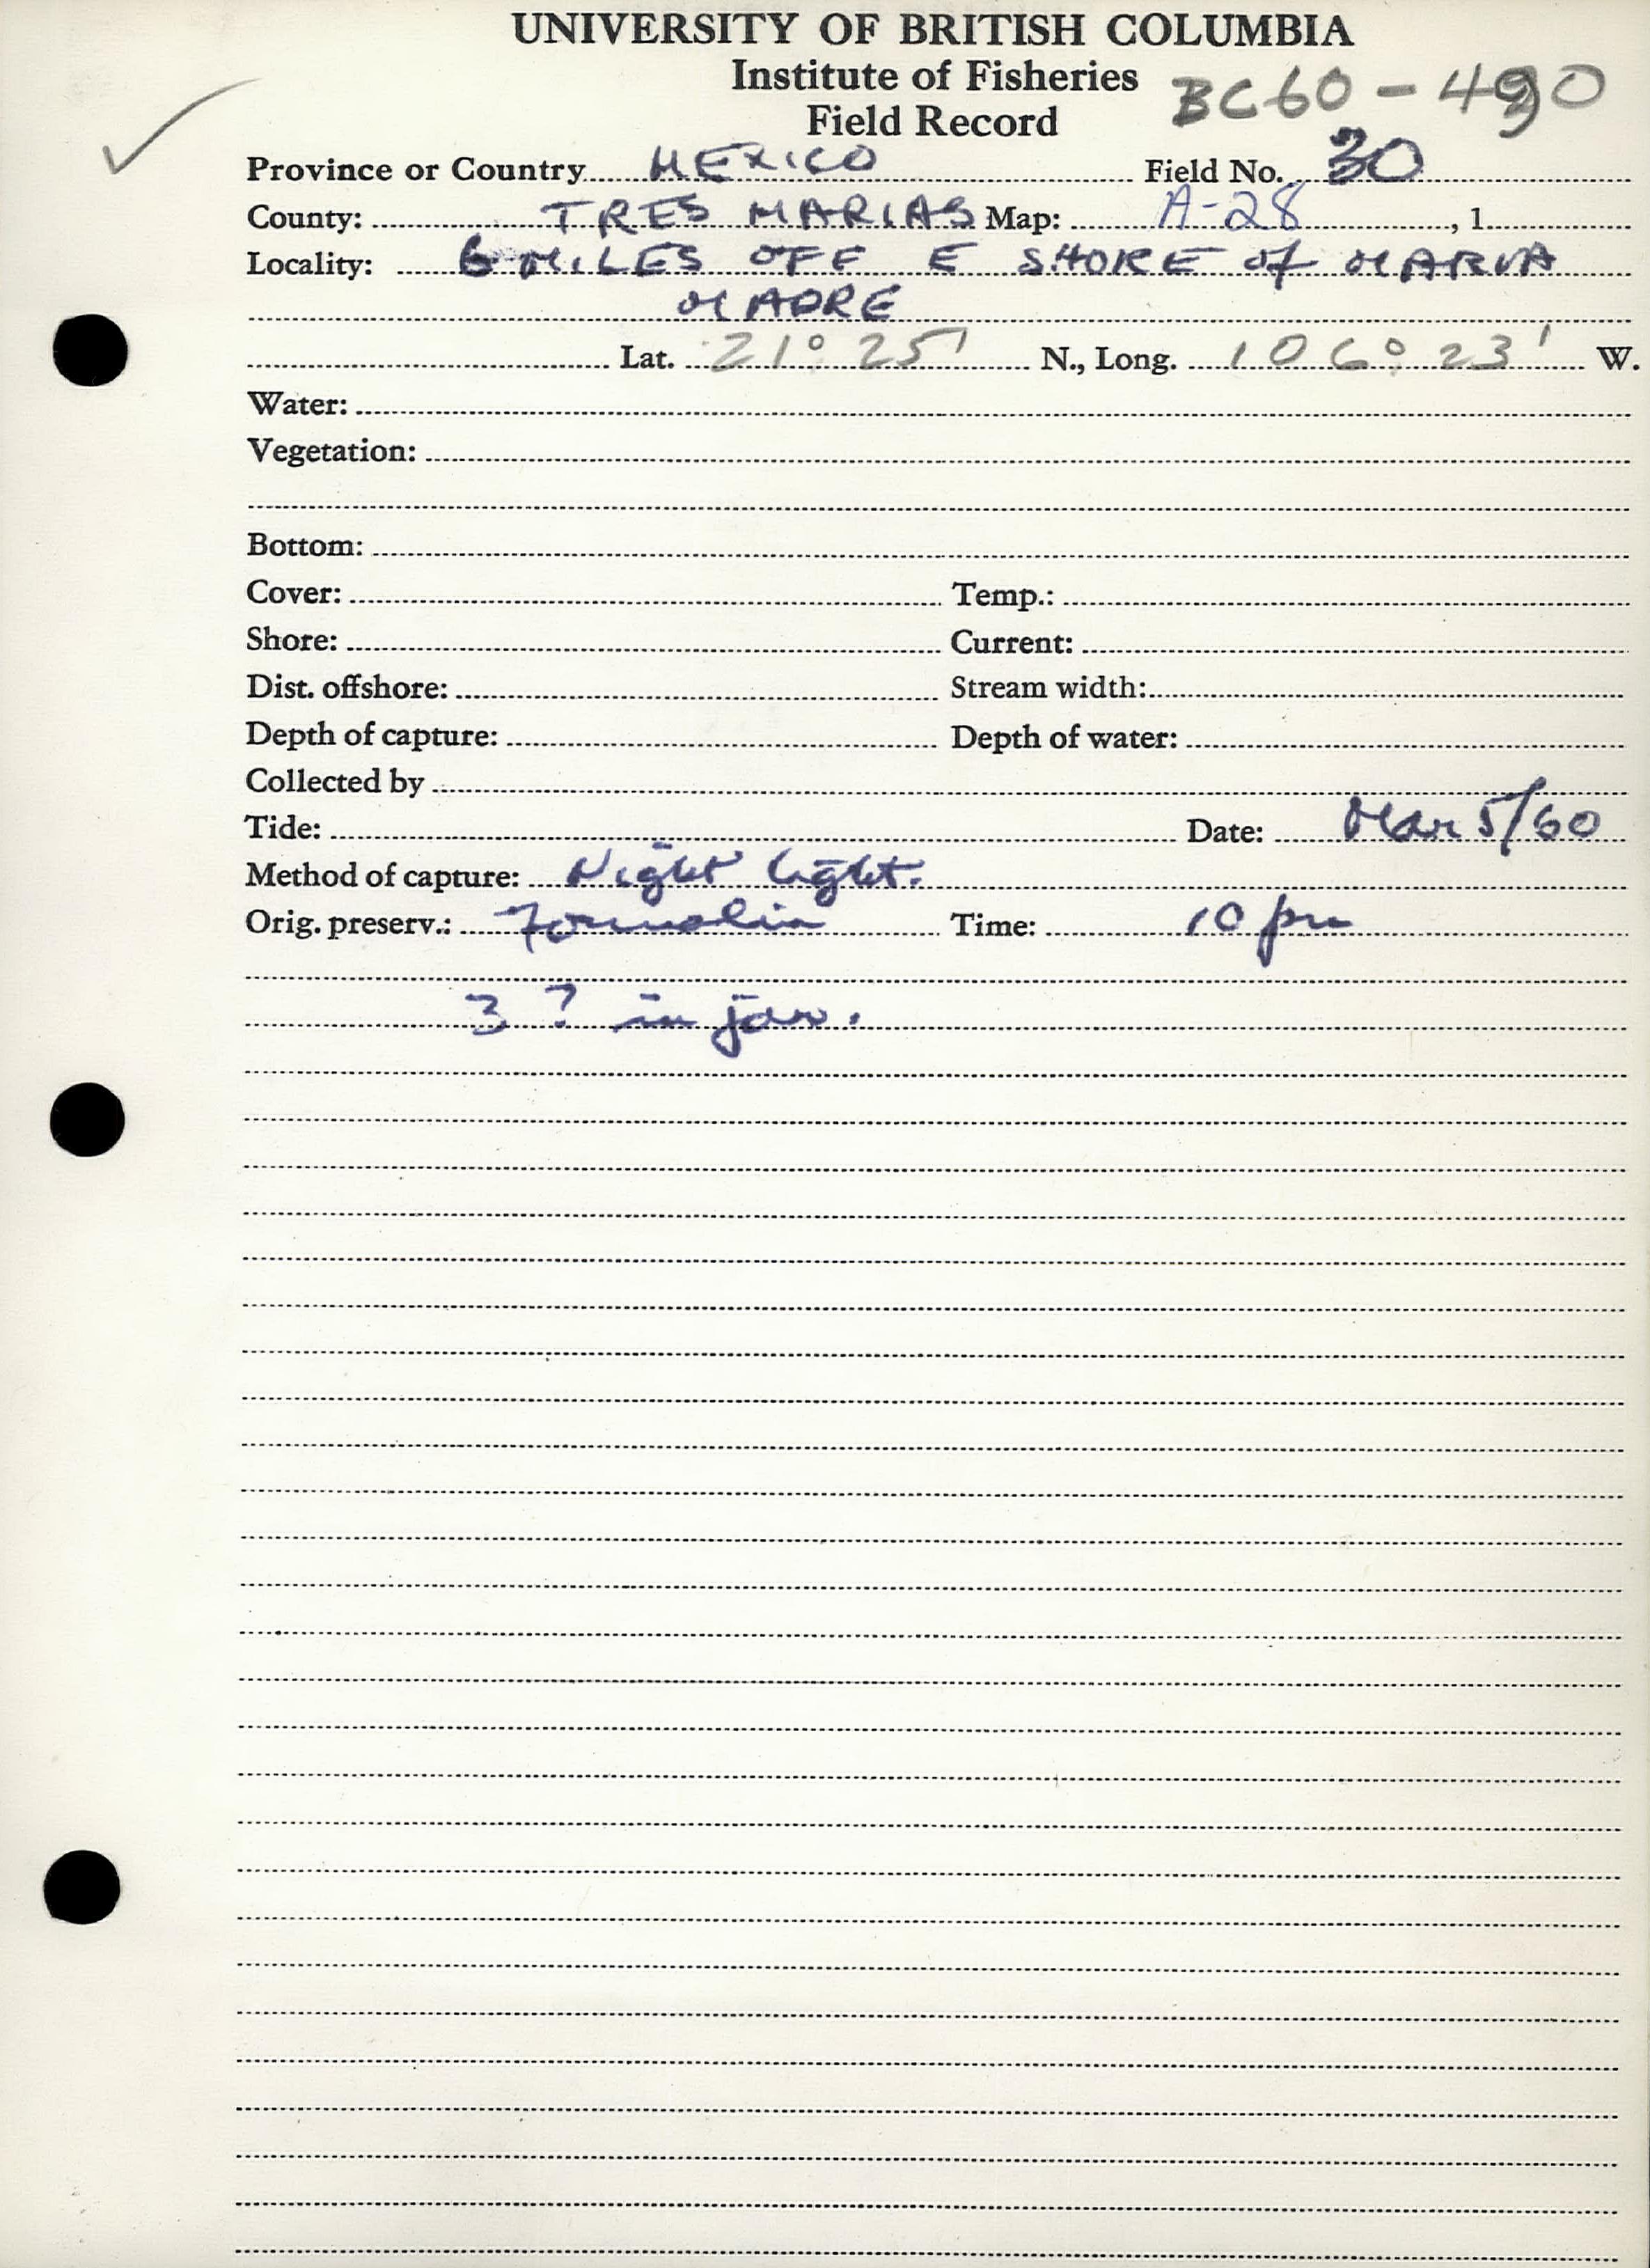 UNIVERSITY OF BRITISH COLUMBIA
Institute of Fisheries
Field Record
BC60-490
Province or Country MEXICO Field No. 30
County: TRES MARIAS Map: A-28, 1
Locality: 6 MILES OFF E SHORE of MARIA
MADRE
Lat. 21° 25' N., Long. 106° 23' W.
Water:
Vegetation:
Bottom:
Cover: Temp.:
Shore: Current:
Dist. offshore: Stream width:
Depth of capture: Depth of water:
Collected by
Tide: Date: Mar 5/60
Method of capture: Night light.
Orig. preserv.: Formalin Time: 10 pm
3 ? in jar.